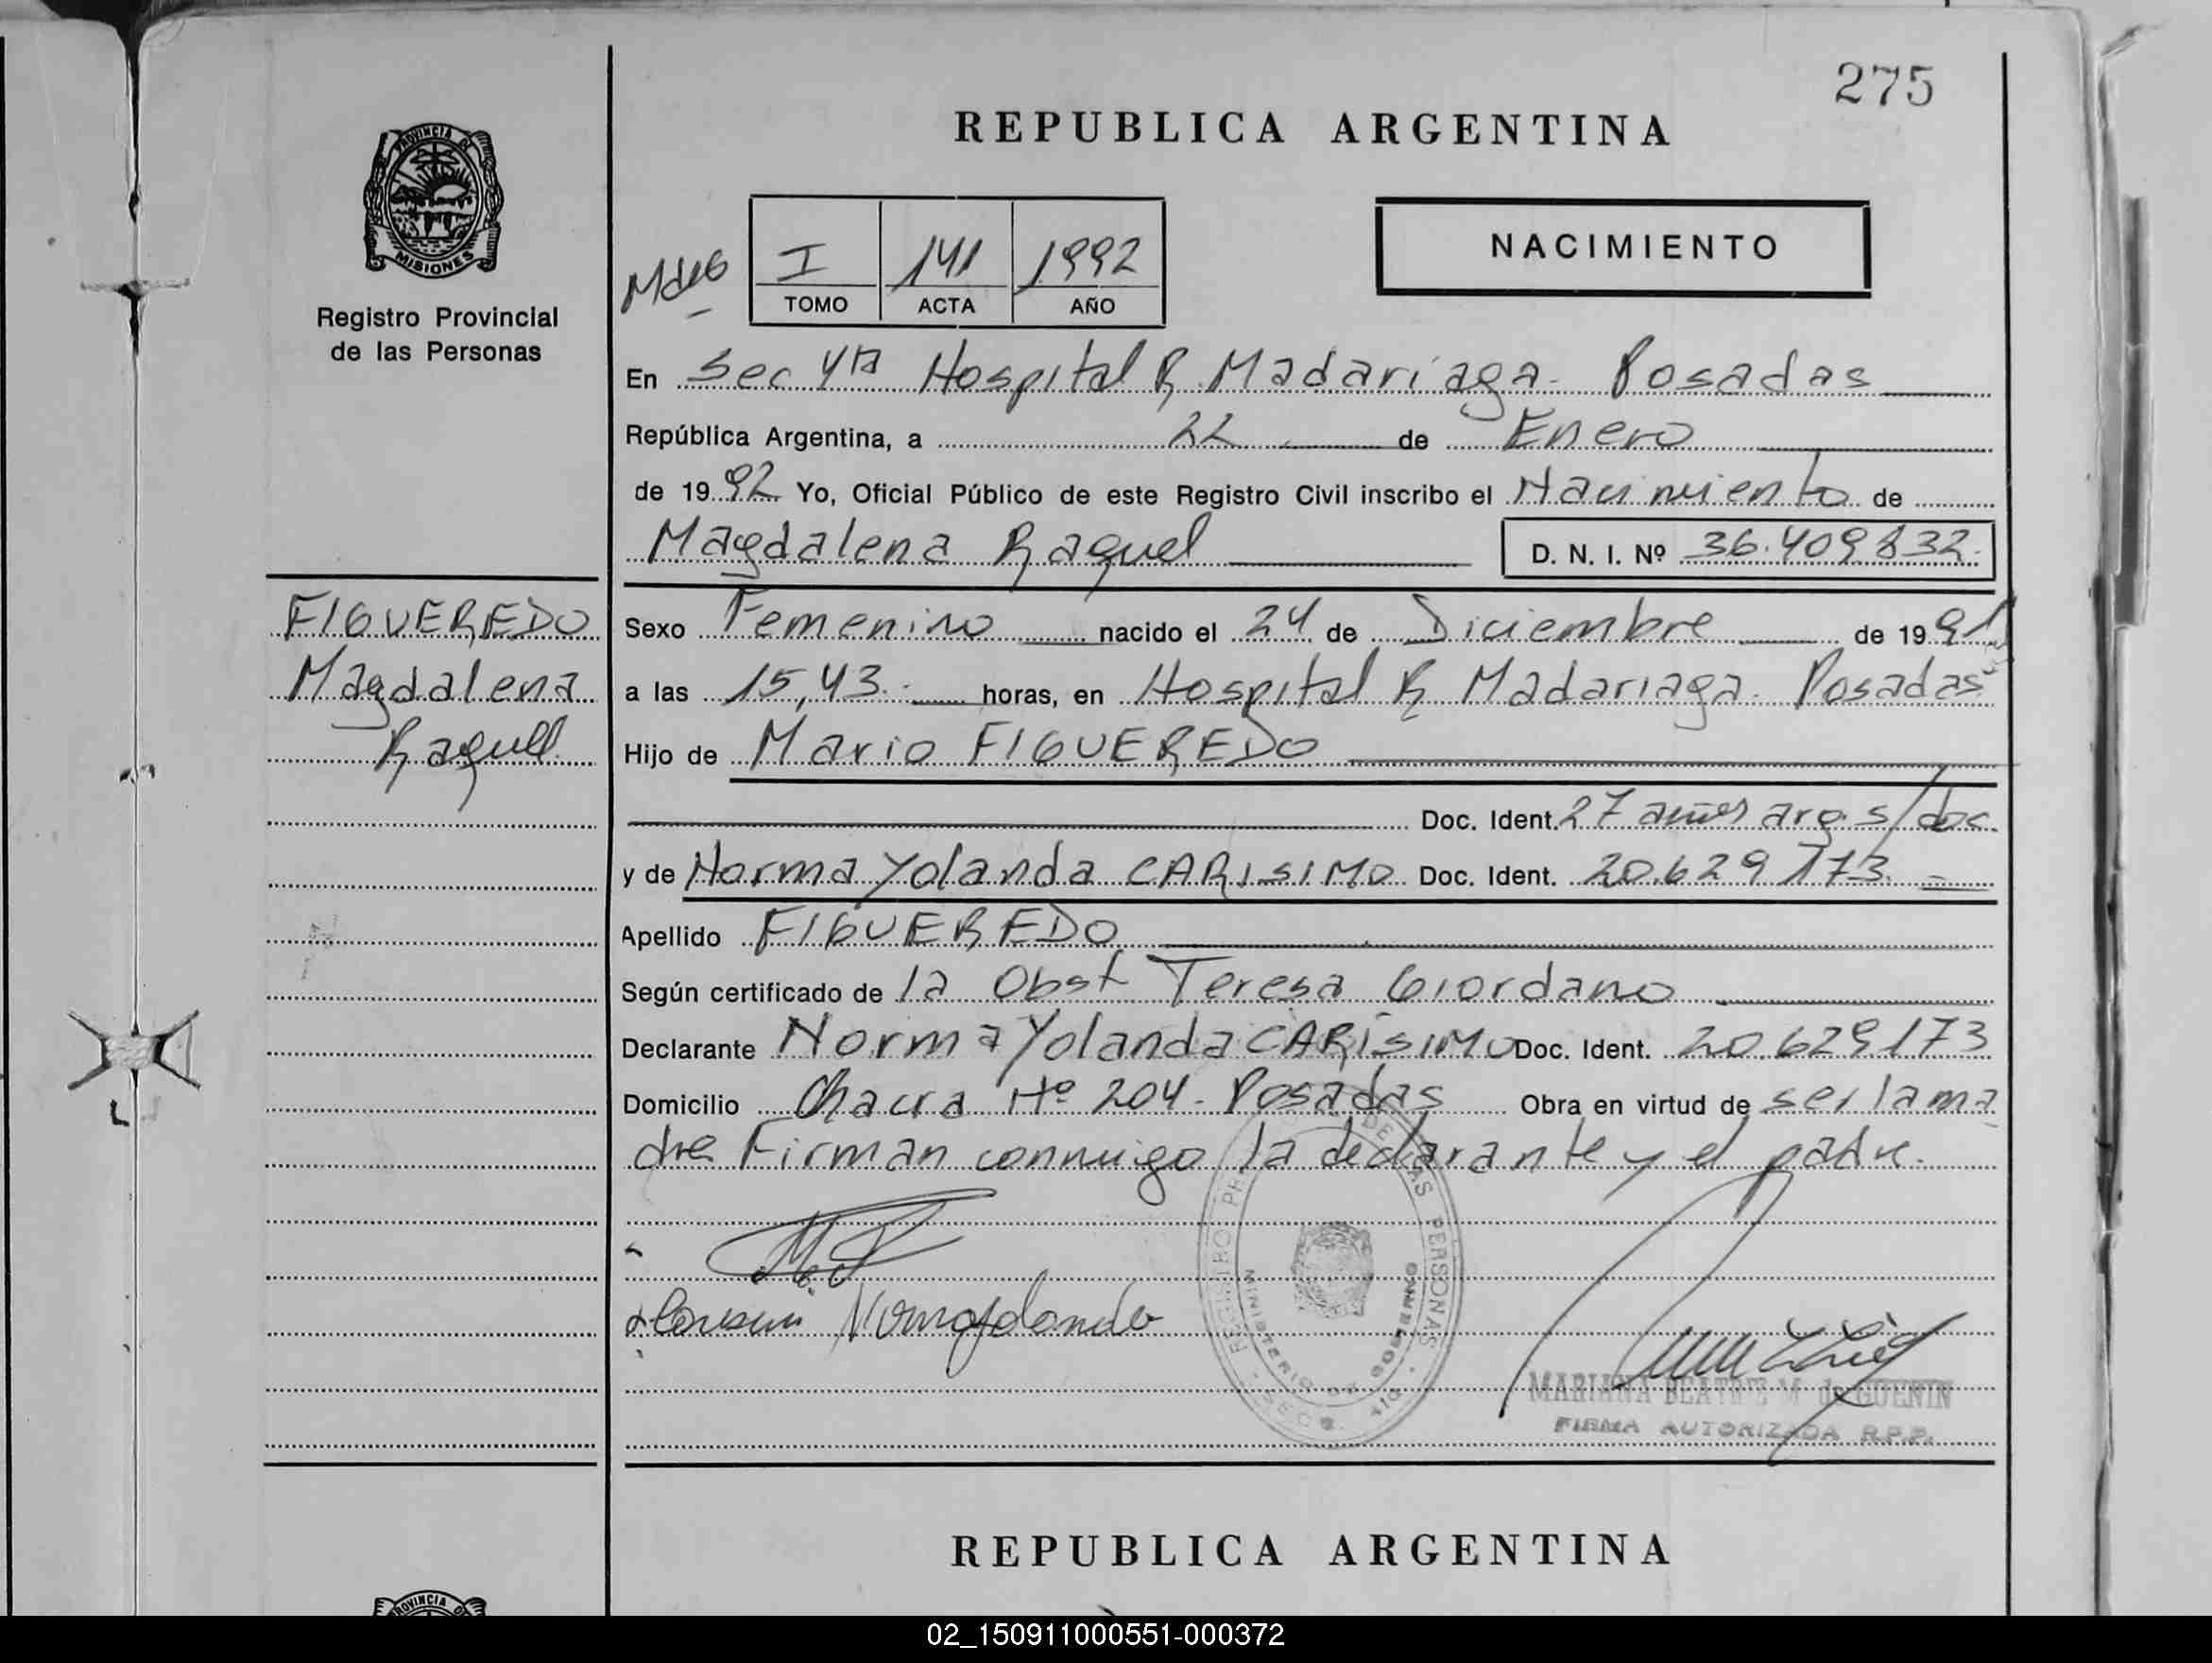 275
REPUBLICA ARGENTINA
PROVINCIA DE
MISIONES
Registro Provincial
de las Personas
I 141 1992
TOMO ACTA AÑO
NACIMIENTO
En Sec 4ta Hospital R. Madariaga - Posadas
República Argentina, a 22 de Enero
de 1992 Yo, Oficial Público de este Registro Civil inscribo el Nacimiento de
Magdalena Raquel D. N. I. Nº 36.409.832.
FIGUEREDO
Magdalena
Raquel
Sexo Femenino nacido el 24 de Diciembre de 1991
a las 15,43 horas, en Hospital R Madariaga - Posadas
Hijo de Mario FIGUEREDO
Doc. Ident. 27 años arg. s/doc.
y de Norma Yolanda CARISIMO Doc. Ident. 20.629.173.
Apellido FIGUEREDO
Según certificado de la Obst Teresa Giordano
Declarante Norma Yolanda CARISIMO Doc. Ident. 20.629.173
Domicilio Chacra Nº 204 - Posadas Obra en virtud de ser la ma
dre Firman conmigo la declarante y el padre.
REGISTRO DE LAS PERSONAS
MINISTERIO DE GOBIERNO
MARIANA BEATRIZ M. de GUENIN
FIRMA AUTORIZADA R.P.P.
REPUBLICA ARGENTINA
02_150911000551-000372